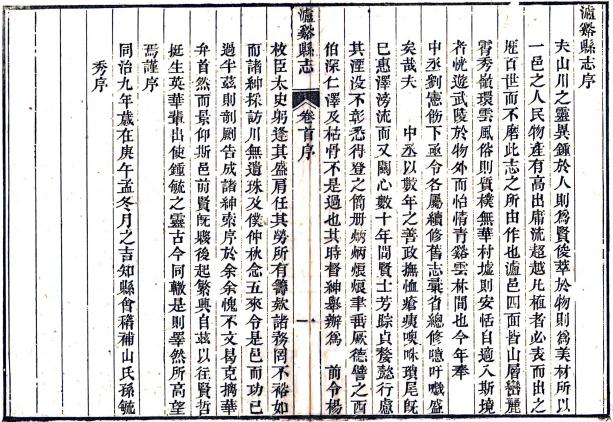 瀘谿縣志序
夫山川之靈異鍾於人則為賢俊萃於物則為美材所以
一邑之人民物產有高出庸流超越凡植者必表而出之
歷百世而不磨此志之所由作也瀘邑四面皆山層巒麗
霄秀嶺環雲風俗則質樸無華村墟則安恬自適入斯境
者恍遊武陵於物外而怡情青谿雲林間也今年奉
中丞劉憲飭下亟令各屬續修舊志彙省總修噫吁嚱盛
矣哉夫 中丞以數年之善政撫恤瘡痍噢咻瑣尾旣
已惠澤滂流而又關心數十年間賢士芳踪貞嫠懿行慮
其湮没不彰悉得登之簡册炳炳烺烺聿垂厥德譬之西
伯深仁澤及枯骨不是過也其時督紳舉辦爲 前令楊
瀘谿縣志
卷首序
一
枚臣太史躬逢其盛肩任其勞所有籌欵諸務罔不裕如
而諸紳採訪川無遺珠及僕仲秋念五來令是邑而功已
過半茲則剞劂告成諸紳索序於余余愧不文曷克摛華
弁首然而景仰斯邑前賢旣驥後起繁興自茲以往賢哲
挺生英華輩出使鍾毓之靈古今同轍是則睪然所高望
焉謹序
同治九年歲在庚午孟冬月之吉知縣會稽補山氏孫毓
秀序